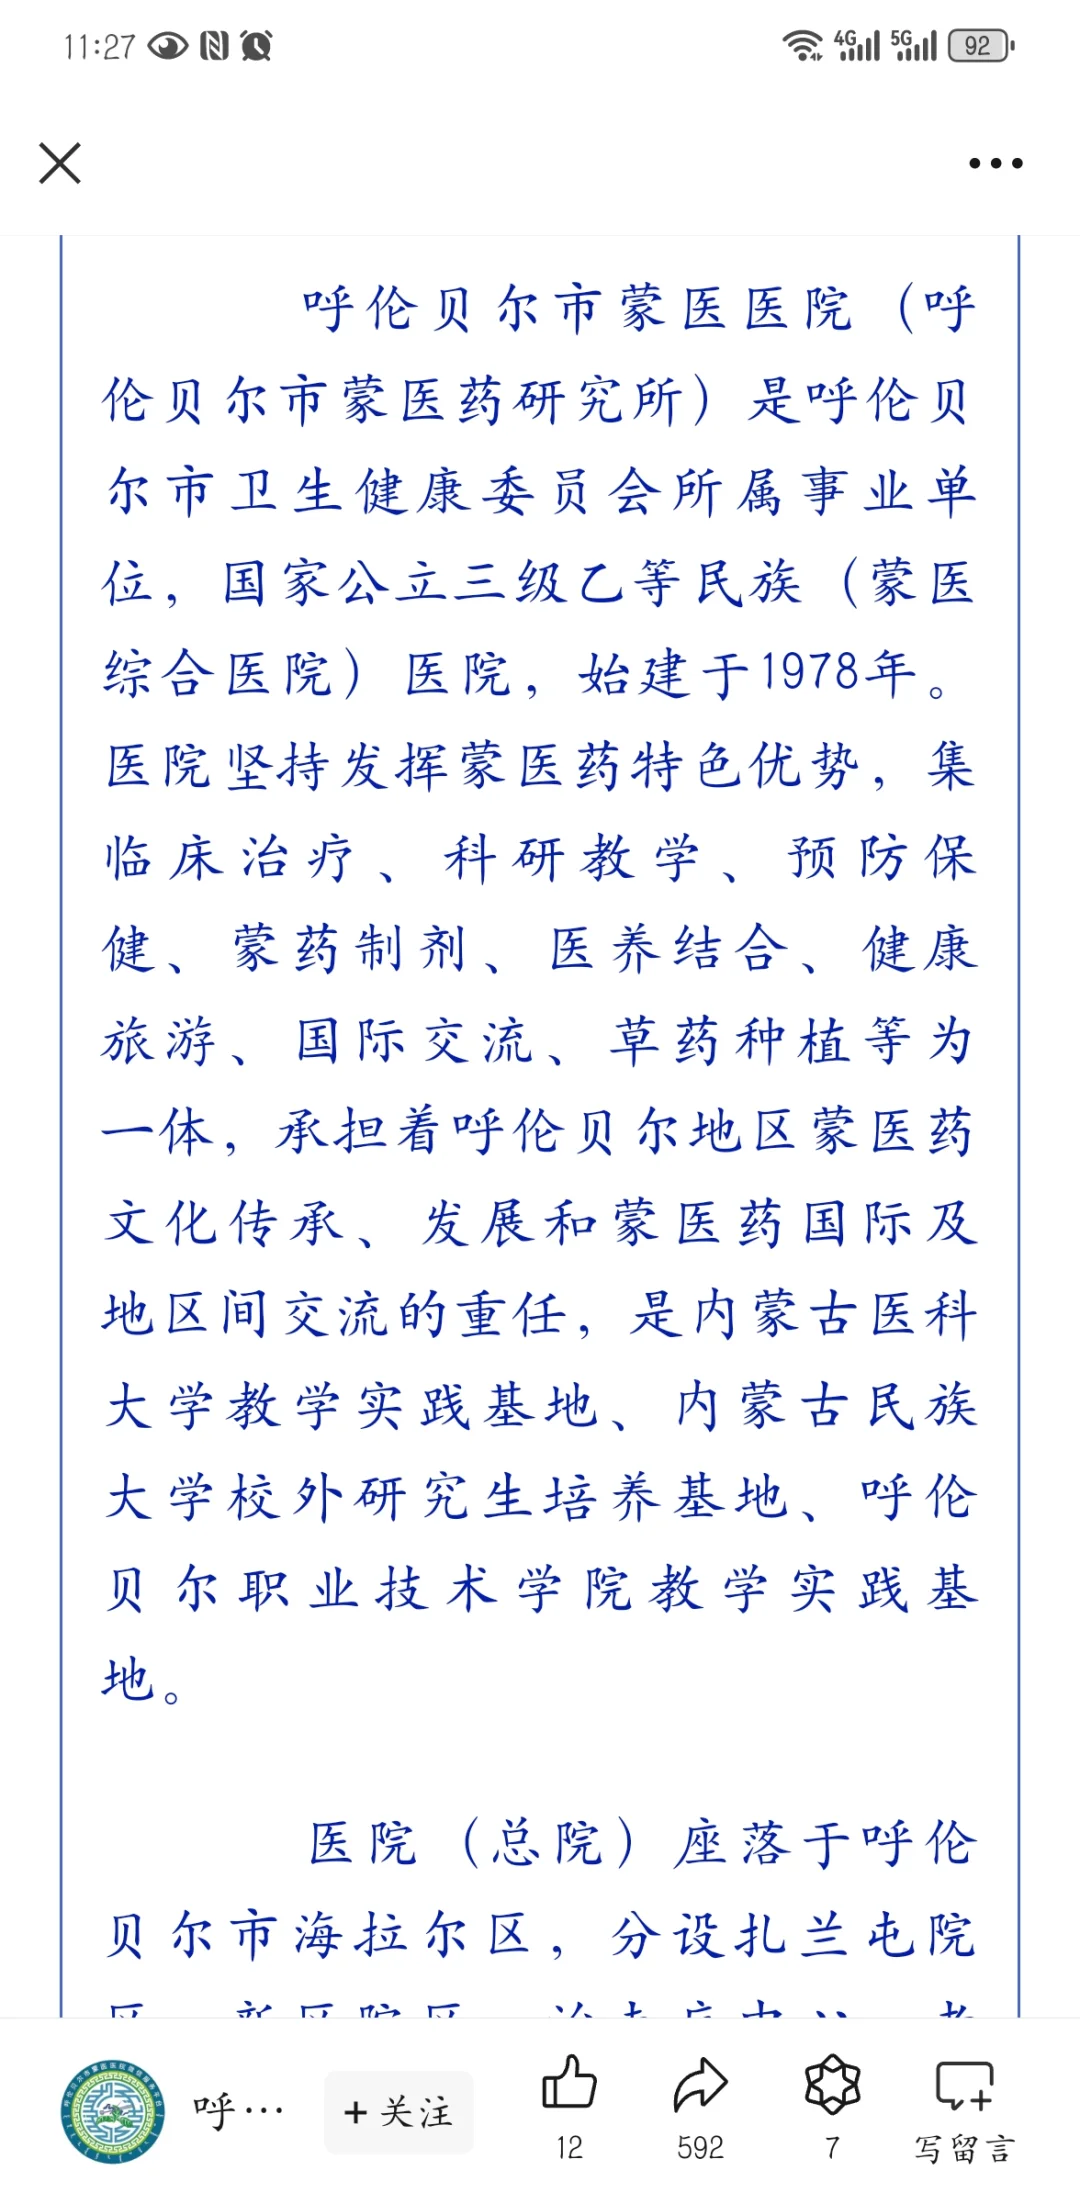 11:27
4G 5G 92
呼伦贝尔市蒙医医院（呼
伦贝尔市蒙医药研究所）是呼伦贝
尔市卫生健康委员会所属事业单
位，国家公立三级乙等民族（蒙医
综合医院）医院，始建于1978年。
医院坚持发挥蒙医药特色优势，集
临床治疗、科研教学、预防保
健、蒙药制剂、医养结合、健康
旅游、国际交流、草药种植等为
一体，承担着呼伦贝尔地区蒙医药
文化传承、发展和蒙医药国际及
地区间交流的重任，是内蒙古医科
大学教学实践基地、内蒙古民族
大学校外研究生培养基地、呼伦
贝尔职业技术学院教学实践基
地。
医院（总院）座落于呼伦
贝尔市海拉尔区，分设扎兰屯院
呼… +关注 12 592 7 写留言